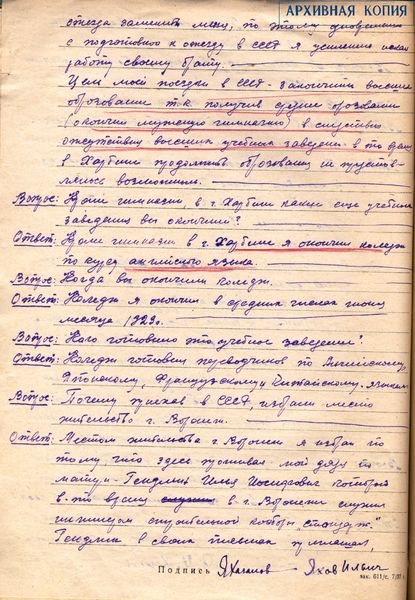 АРХИВНАЯ КОПИЯ
отъезда заменить меня, по этому одновременно
с подготовкой к отъезду в СССР я усиленно искал
работу своему брату.
Цель моей поездки в СССР - закончить высшее
образование т.к. получив среднее образование
(окончил мужскую гимназию) в следствие
отсутствия высших учебных заведений в то время
в Харбине продолжить образование не представ-
лялось возможным.
Вопрос: Кроме гимназии, в г. Харбине какие еще учебные
заведения вы окончили?
Ответ: Кроме гимназии в г. Харбине я окончил колледж
по курсу английского языка.
Вопрос: Когда вы окончили колледж.
Ответ: Колледж я окончил в средних числах июня
месяца 1929г.
Вопрос: Кого готовило это учебное заведение?
Ответ: Колледж готовил переводчиков по Английскому,
Японскому, Французскому и Китайскому языкам.
Вопрос: Почему приехав в СССР, избрали место
жительство г. Воронеж.
Ответ: Местом жительства г. Воронеж я избрал по
тому, что здесь проживал мой дядя по
матери - Гендлин Илья Иосифович который
в то время в г. Воронеже служил
инженером строительной конторы
Гендлин в своих письмах
Подпись Яхов Ильич
зак. 611/с.